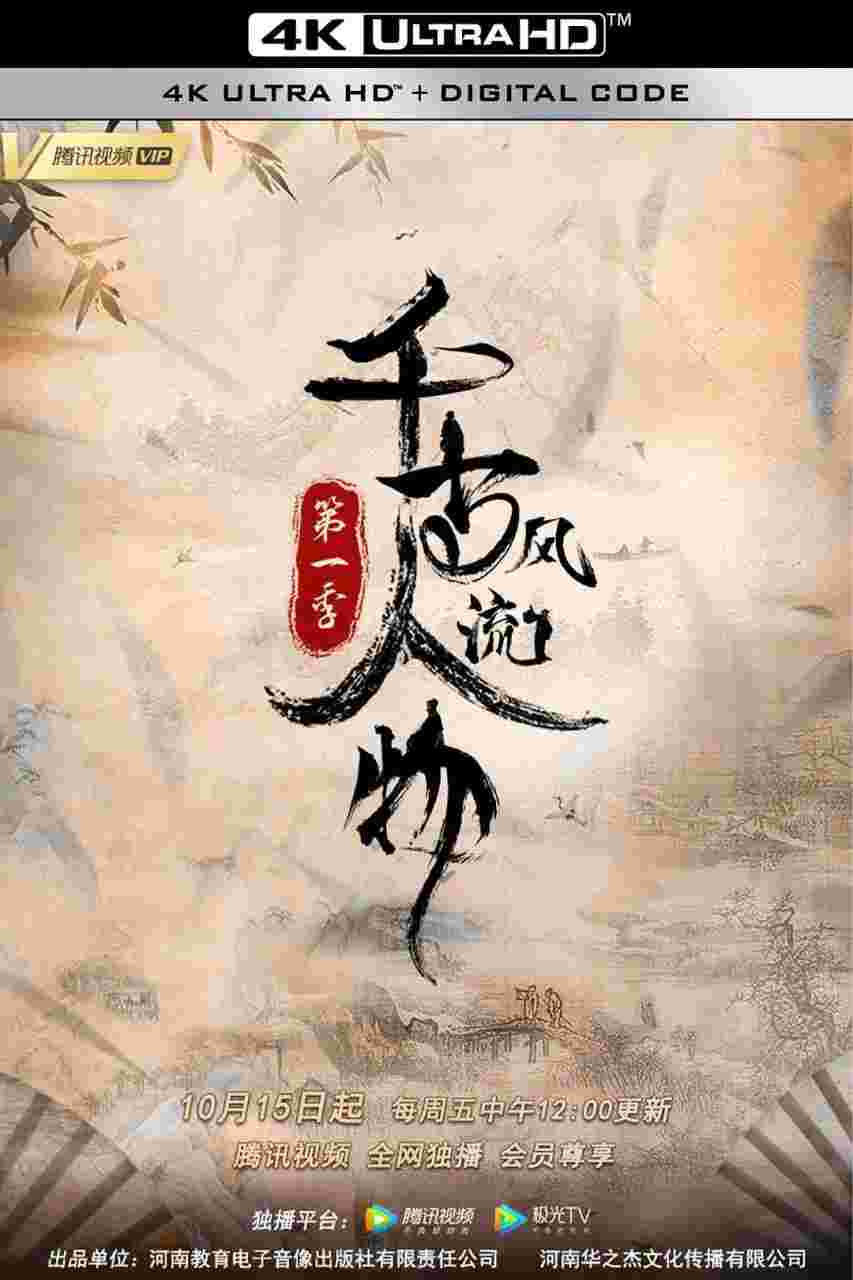 4K ULTRA HD™
4K ULTRA HD™ + DIGITAL CODE
腾讯视频 VIP
千古风流人物
第一季
10月15日起 每周五中午12:00更新
腾讯视频 全网独播 会员尊享
独播平台： 腾讯视频 极光TV
出品单位：河南教育电子音像出版社有限责任公司 河南华之杰文化传播有限公司